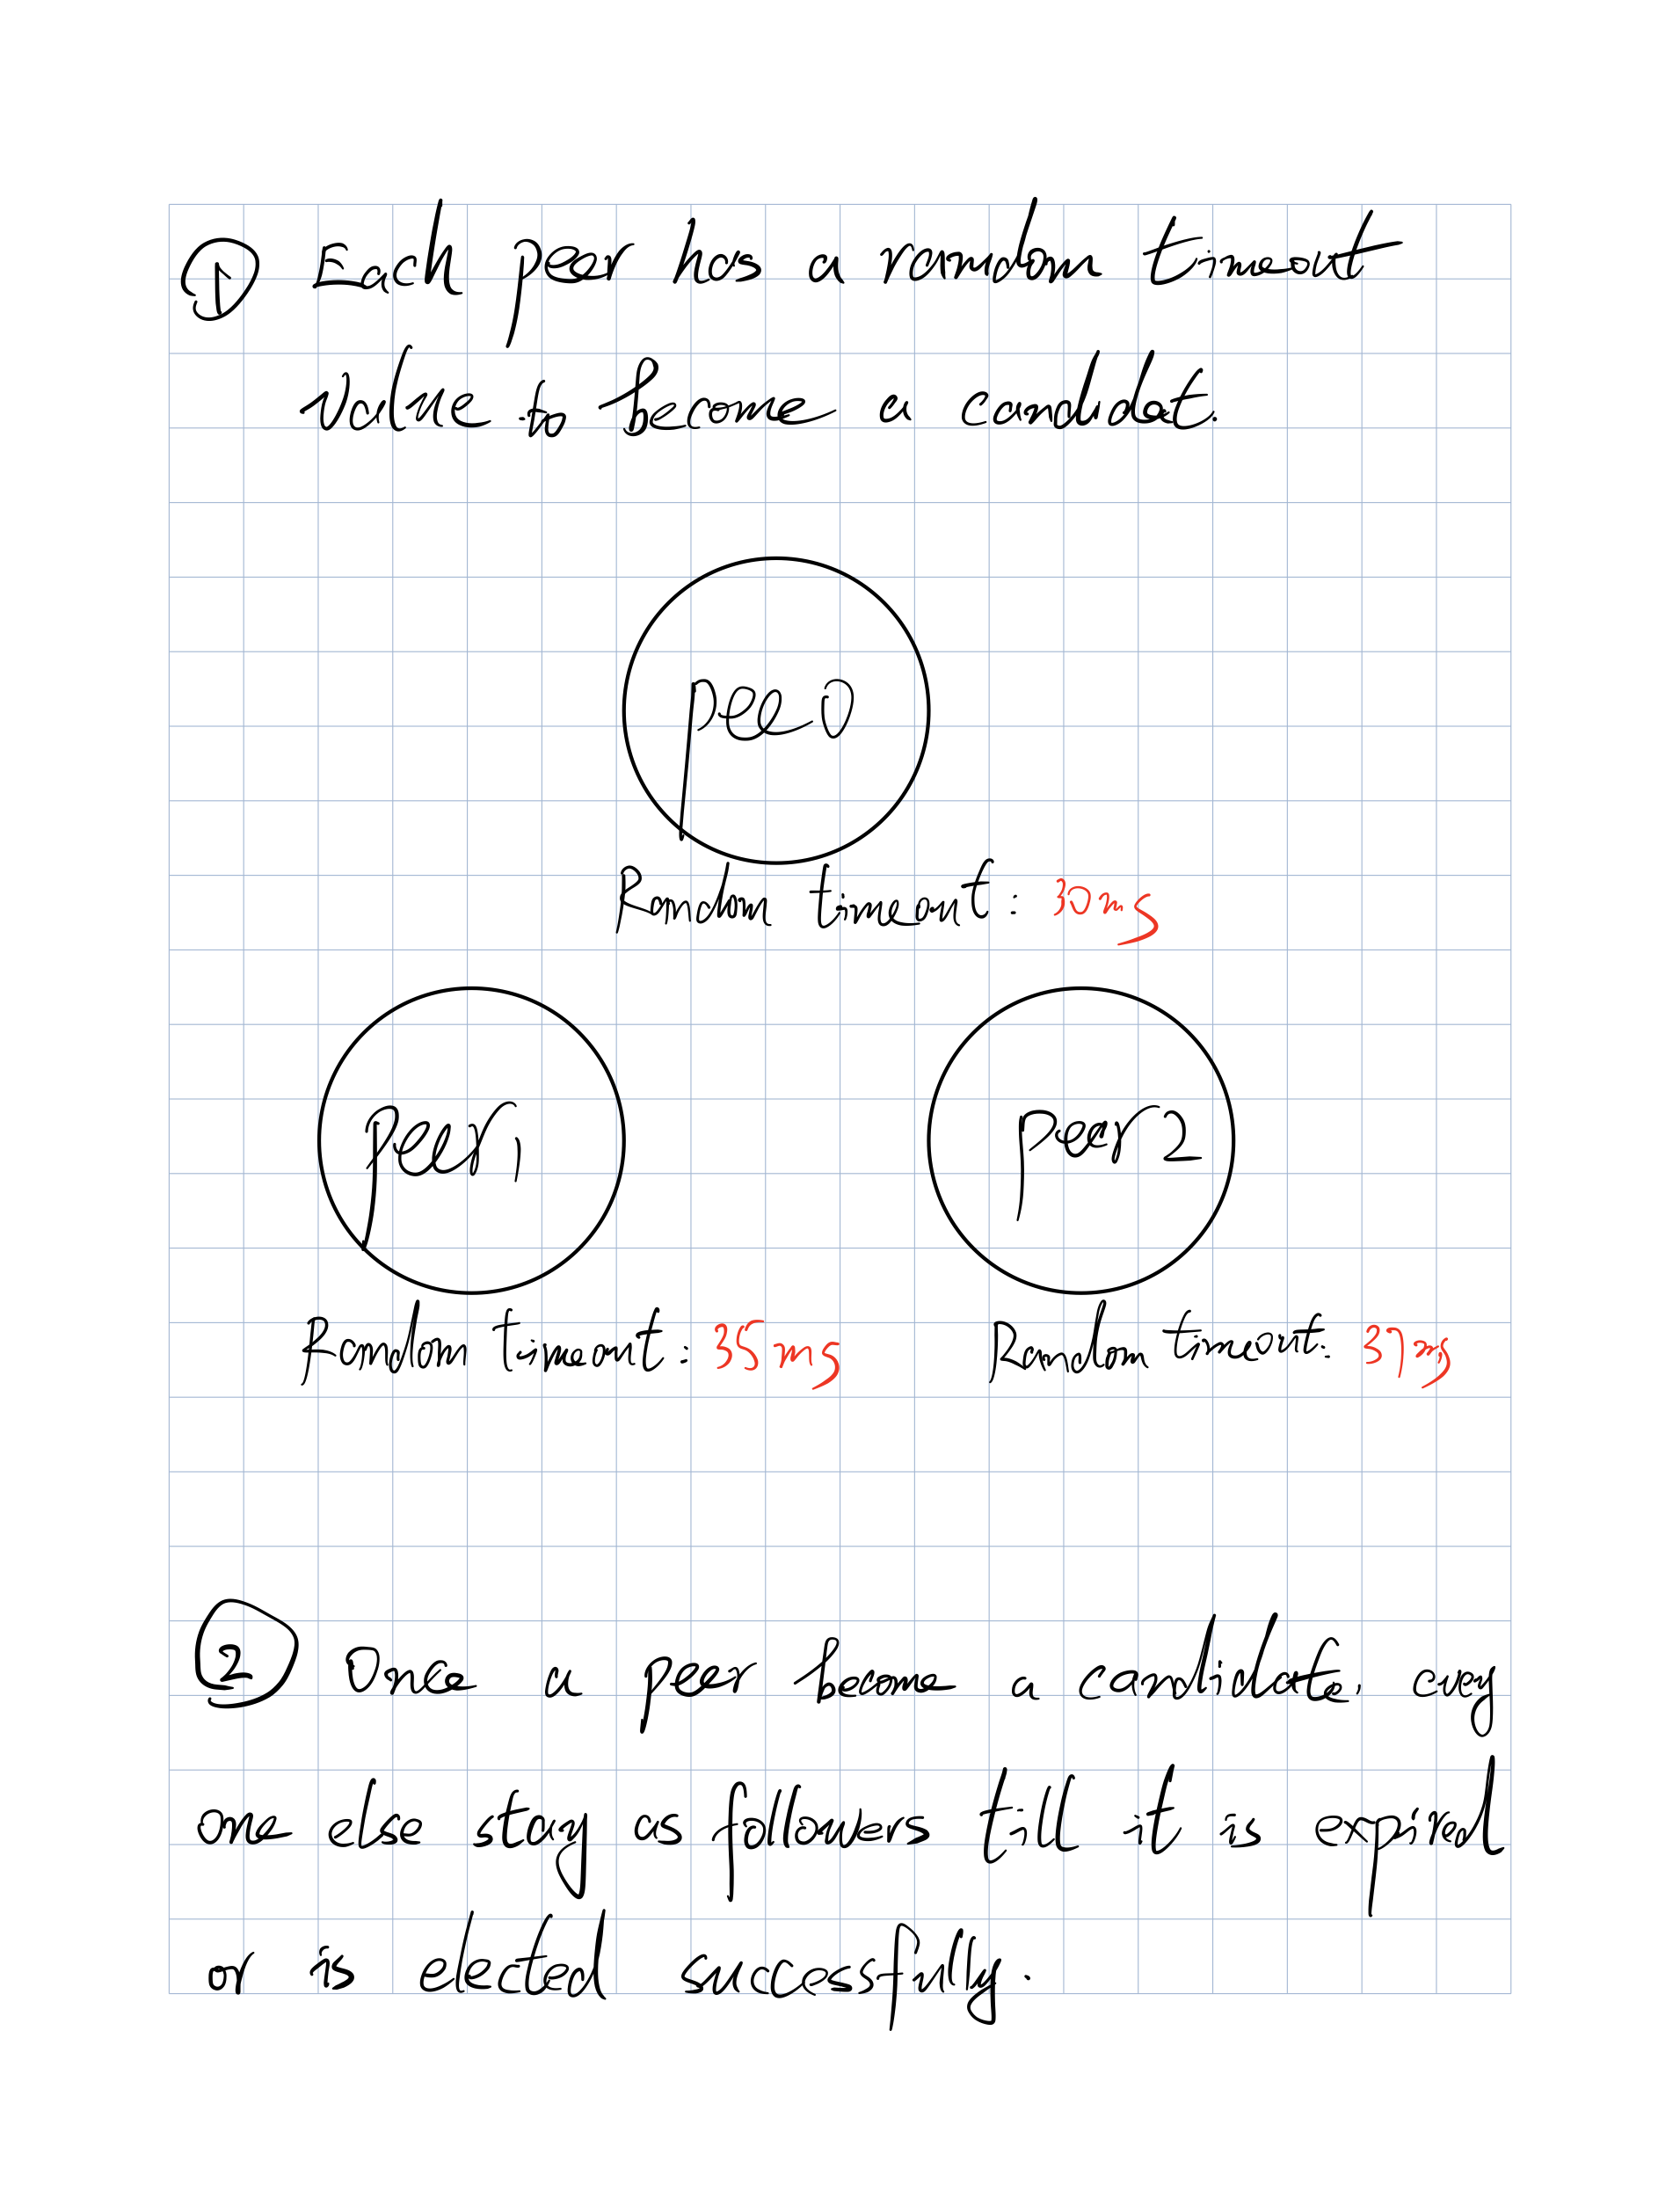 ① Each peer has a random timeout
value to become a candidate.
peer 0
Random timeout: 30ms
peer 1
peer 2
Random timeout: 35ms
Random timeout: 37ms
② Once a peer become a candidate, every
one else stay as followers till it is expired
or is elected successfully.